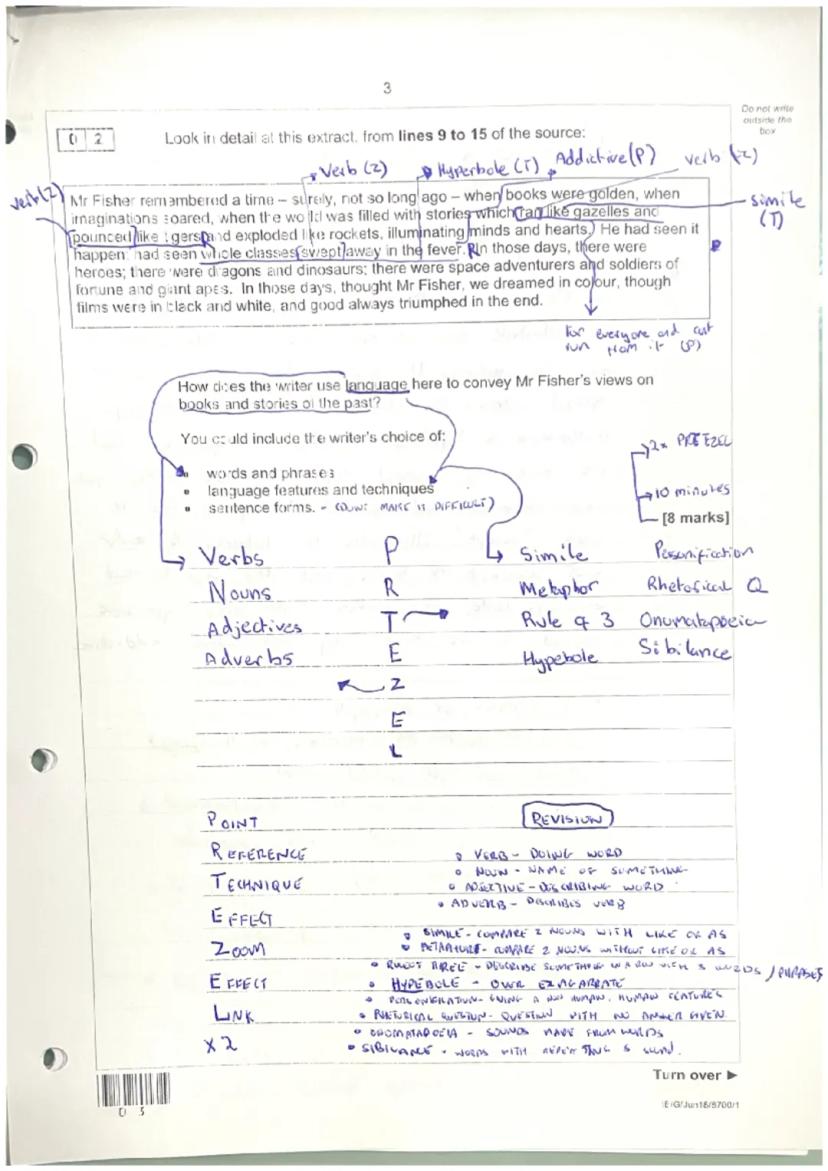 3
Do not write
outside the
box
0 2 Look in detail at this extract, from lines 9 to 15 of the source:
verb (Z) Hyperbole (T) Addictive (P) verb (Z)
verb (Z)
Mr Fisher remembered a time – surely, not so long ago – when books were golden, when
imaginations soared, when the world was filled with stories which ran like gazelles and
pounced like tigers and exploded like rockets, illuminating minds and hearts. He had seen it
happen; had seen whole classes swept away in the fever. In those days, there were
heroes; there were dragons and dinosaurs; there were space adventurers and soldiers of
fortune and giant apes. In those days, thought Mr Fisher, we dreamed in colour, though
films were in black and white, and good always triumphed in the end.
simile
(T)
R
R
for everyone and cant
run from it (P)
How does the writer use language here to convey Mr Fisher's views on
books and stories of the past?
You could include the writer's choice of:
• words and phrases
• language features and techniques
• sentence forms. - (DONT MAKE IT DIFFICULT)
2x PREEZEL
10 minutes
[8 marks]
Verbs P Simile Personification
Nouns R Metaphor Rhetorical Q
Adjectives T Rule of 3 Onomatapoeia
Adverbs E Hypebole Sibilance
Z
E
L
POINT REVISION
REFERENCE • VERB - DOING WORD
• NOUN - NAME OF SOMETHING
TECHNIQUE • ADJECTIVE - DESCRIBING WORD
• ADVERB - DESCRIBES VERB
EFFECT
• SIMILE - COMPARE 2 NOUNS WITH LIKE OR AS
ZOOM • - COMPARE 2 NOUNS WITHOUT LIKE OR AS
• - DESCRIBE SOMETHING IN A ROW WITH 3 WORDS / PHRASES
EFFECT • HYPEBOLE - OVER EXAGARRATE
• - GIVING A NON HUMAN, HUMAN FEATURES
LINK • RHETORICAL QUESTION - QUESTION WITH NO ANSWER GIVEN
• - SOUNDS MADE FROM WORDS
x 2 • SIBILANCE - WORDS WITH S SOUND.
Turn over ►
0 3
IB/G/Jun18/8700/1